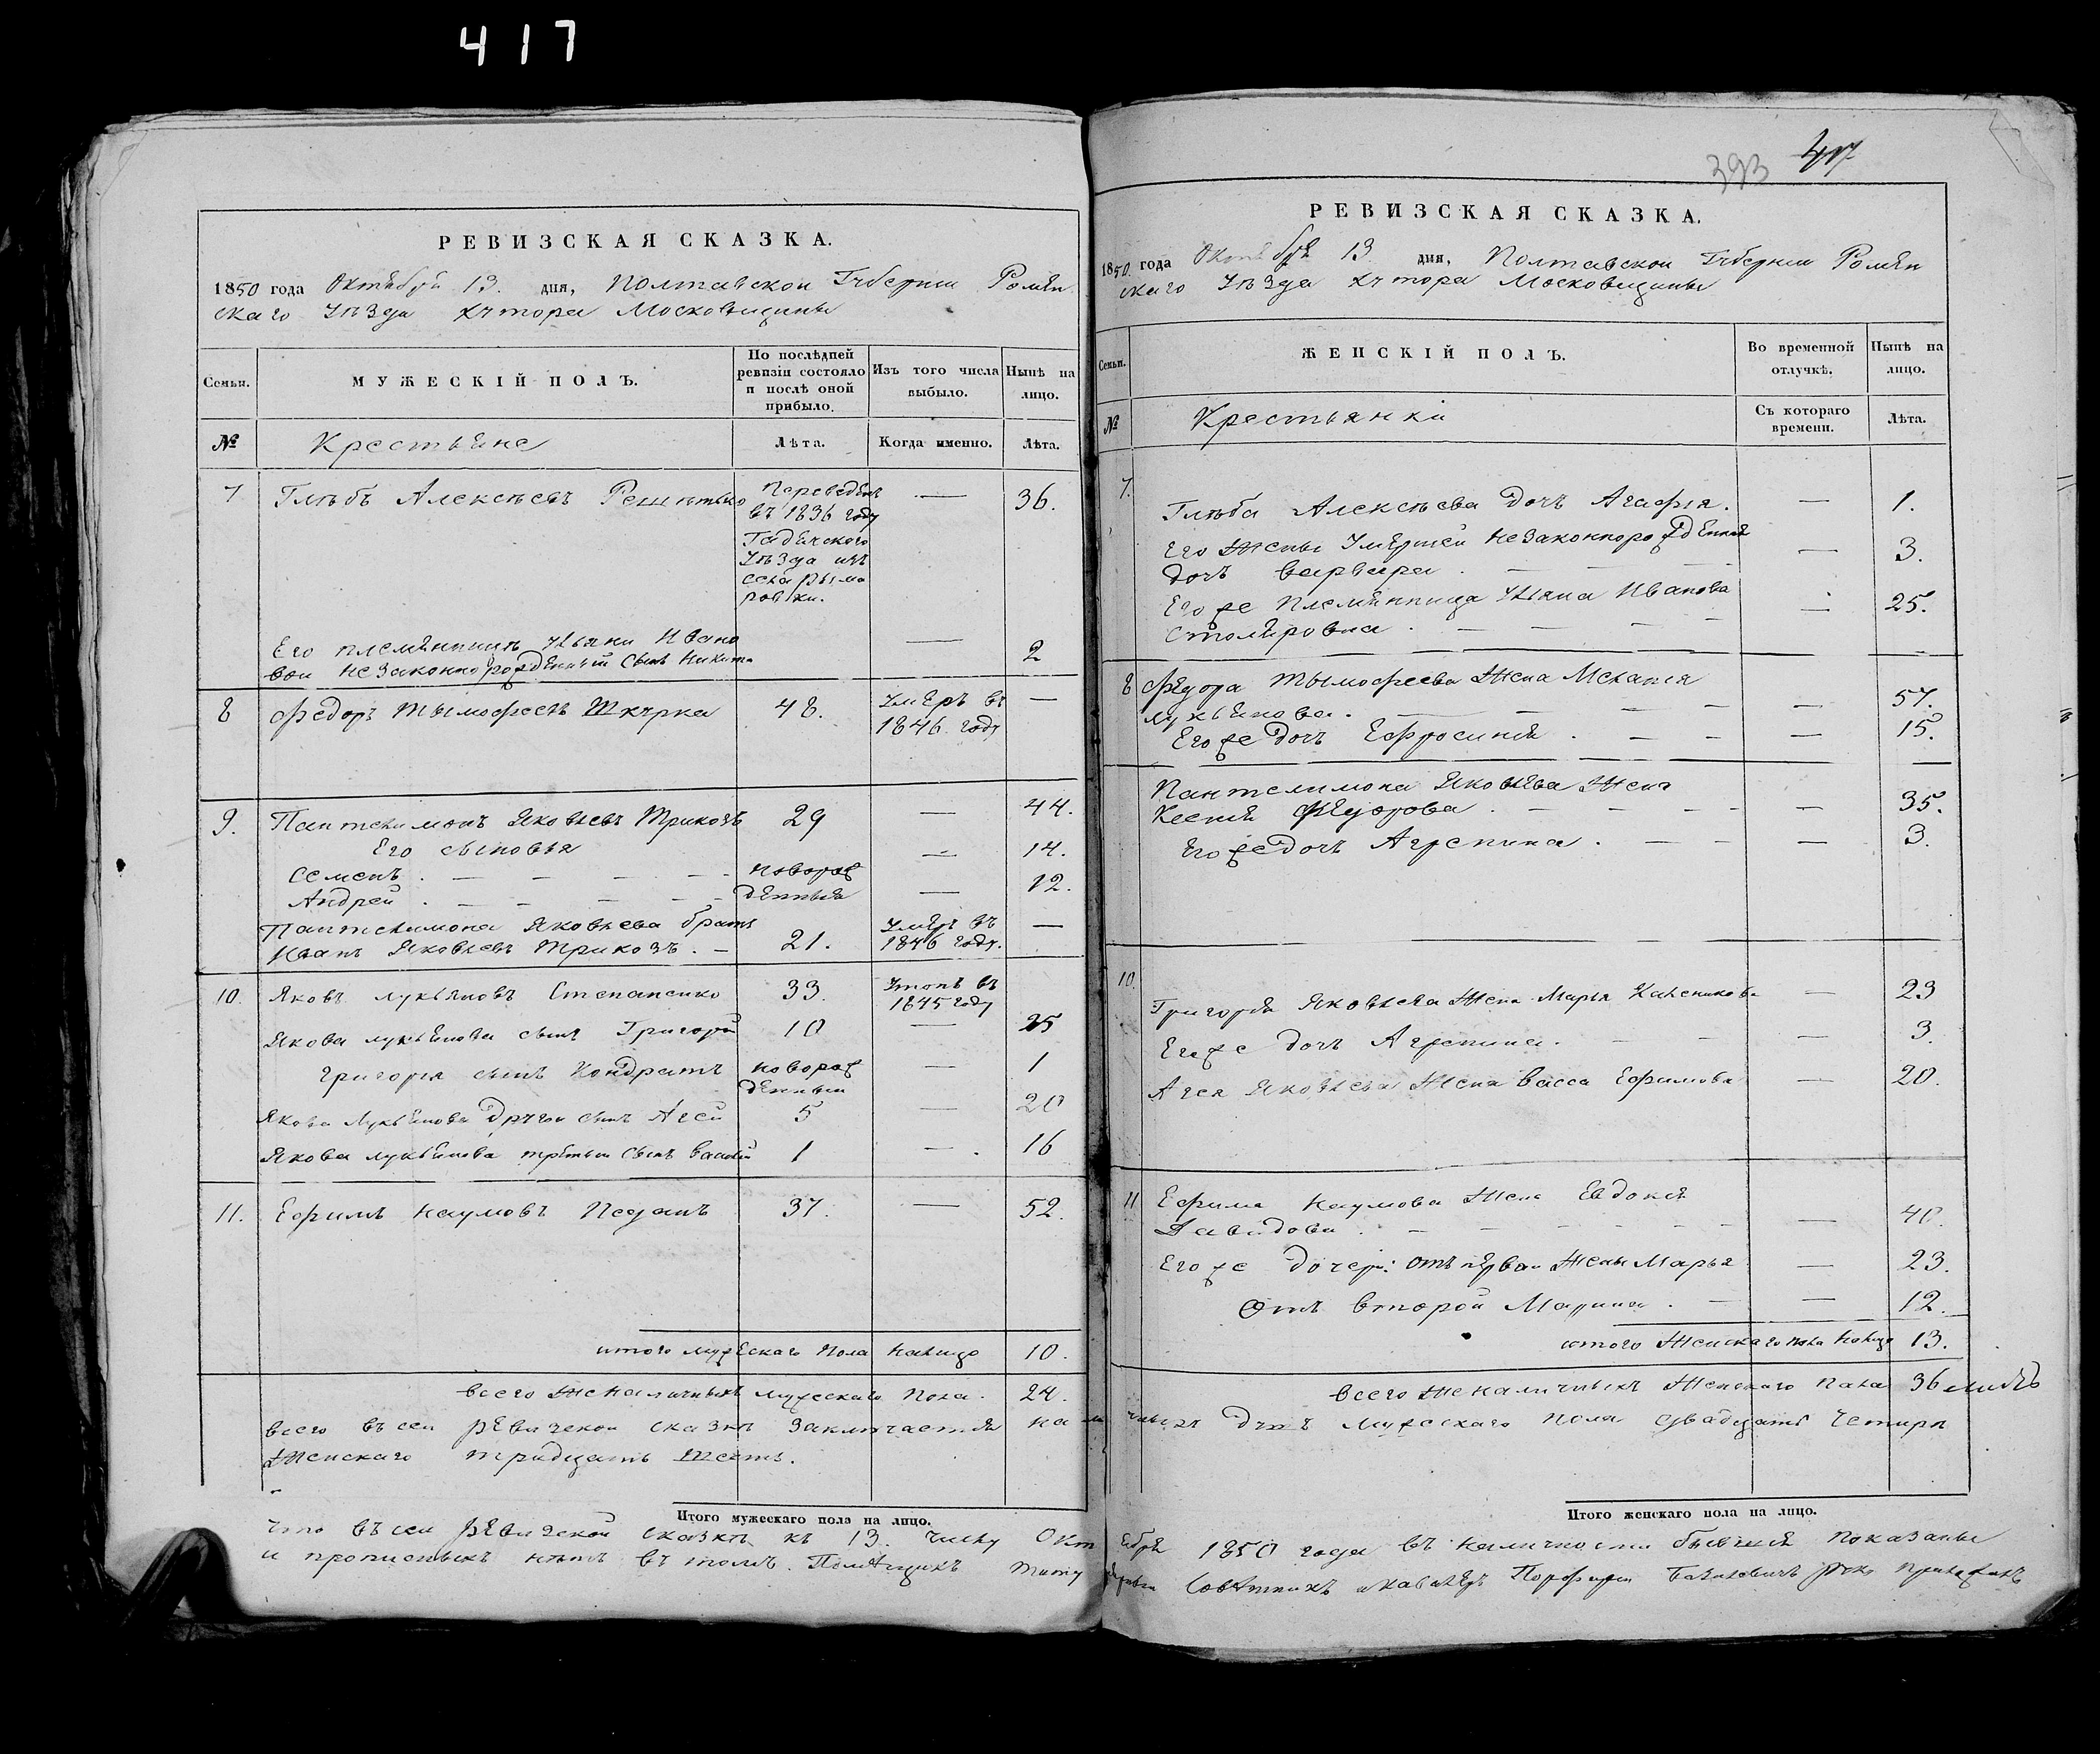 417
РЕВИЗСКАЯ СКАЗКА.
1850 года Октября 13. дня, Полтавской Губернии Ромен
скаго Уѣзда хутора Московщины
Семьи.
МУЖЕСКІЙ ПОЛЪ.
По послѣдней ревизіи состояло и послѣ оной прибыло.
Изъ того числа выбыло.
Нынѣ на лицо.
№
Крестьяне
Лѣта.
Когда именно.
Лѣта.
7 Глѣбъ Алексѣевъ Решѣтько — 36.
Переведенъ
въ 1836 году
Гадячского
Уѣзда изъ
села Рыма
ровки.
Его племянницы Ульяни Ивано — 2
вои незаконнорожденный сынъ Никита
8 Федоръ Тымофеевъ Шкурка 48. Умеръ въ —
1846 году
9. Пантелимонъ Яковлевъ Трикозъ 29 — 44.
Его сыновья
Семенъ . — — — новорож — 14.
Андрей . — — — денныя — 12.
Пантелимона Яковлева братъ Умеръ въ —
Иванъ Яковлевъ Трикозъ . — 21. 1846 году.
10. Яковъ Лукьяновъ Степаненко 33. Утопъ въ
1845 году
Якова Лукьянова сынъ Григорій 10 — 25
Григорія сынъ Кондратъ новорож — 1
денный
Якова Лукьянова Другои сынъ Агей 5 — 20
Якова Лукьянова третьи сынъ Василій 1 — . 16
11. Ефимъ Наумовъ Педанъ 37. — 52.
итого мужескаго пола налицо 10.
всего же наличныхъ мужескаго пола. 24.
всего въ сеи ревизской сказкѣ заключается на ли
Женскаго тридцать шесть.
Итого мужескаго пола на лицо.
Что въ сеи ревизской сказкѣ къ 13. числу Окт
и прописныхъ нѣтъ въ томъ. Помѣщикъ
393 417
РЕВИЗСКАЯ СКАЗКА.
1850. года Октября 13. дня, Полтавской Губернии Ромен
скаго Уѣзда хутора Московщины
Семьи.
ЖЕНСКІЙ ПОЛЪ.
Во временной отлучкѣ.
Нынѣ на лицо.
№
Крестьянки
Съ котораго времени.
Лѣта.
7. Глѣба Алексѣева дочъ Агафія. — 1.
Его Жены Умершей незаконнорожденная
дочъ Варвара . — — — — 3.
Его же племянница Ульяна Иванова — 25.
Столяровна . — — — —
8 Федора Тымофеева Жена Меланія
Лукьянова. — — — — — 57.
Его же дочъ Ефросинія . — — — 15.
Пантелимона Яковлева Жена
Ксенія Федорова . — — — — — 35.
Его же дочъ Агрепина . — — — 3.
10. Григорія Яковлева Жена Марья Каленикова — 23
Его же дочъ Агрепина. — — — 3.
Агея Яковлева Жена Васса Ефимова — 20.
11 Ефима Наумова Жена Евдокія
Давидова . — — — — — — — 40.
Его же дочери: отъ первои Жены Марья — 23.
Отъ второй Марина . — — 12.
итого Женскаго пола налицо 13.
всего же наличныхъ Женскаго пола 36
чныхъ душъ мужескаго пола двадцать четыри
Итого женскаго пола на лицо.
ября 1850 года въ наличности бывшия показаны
Совѣтникъ и кавалеръ Порфири